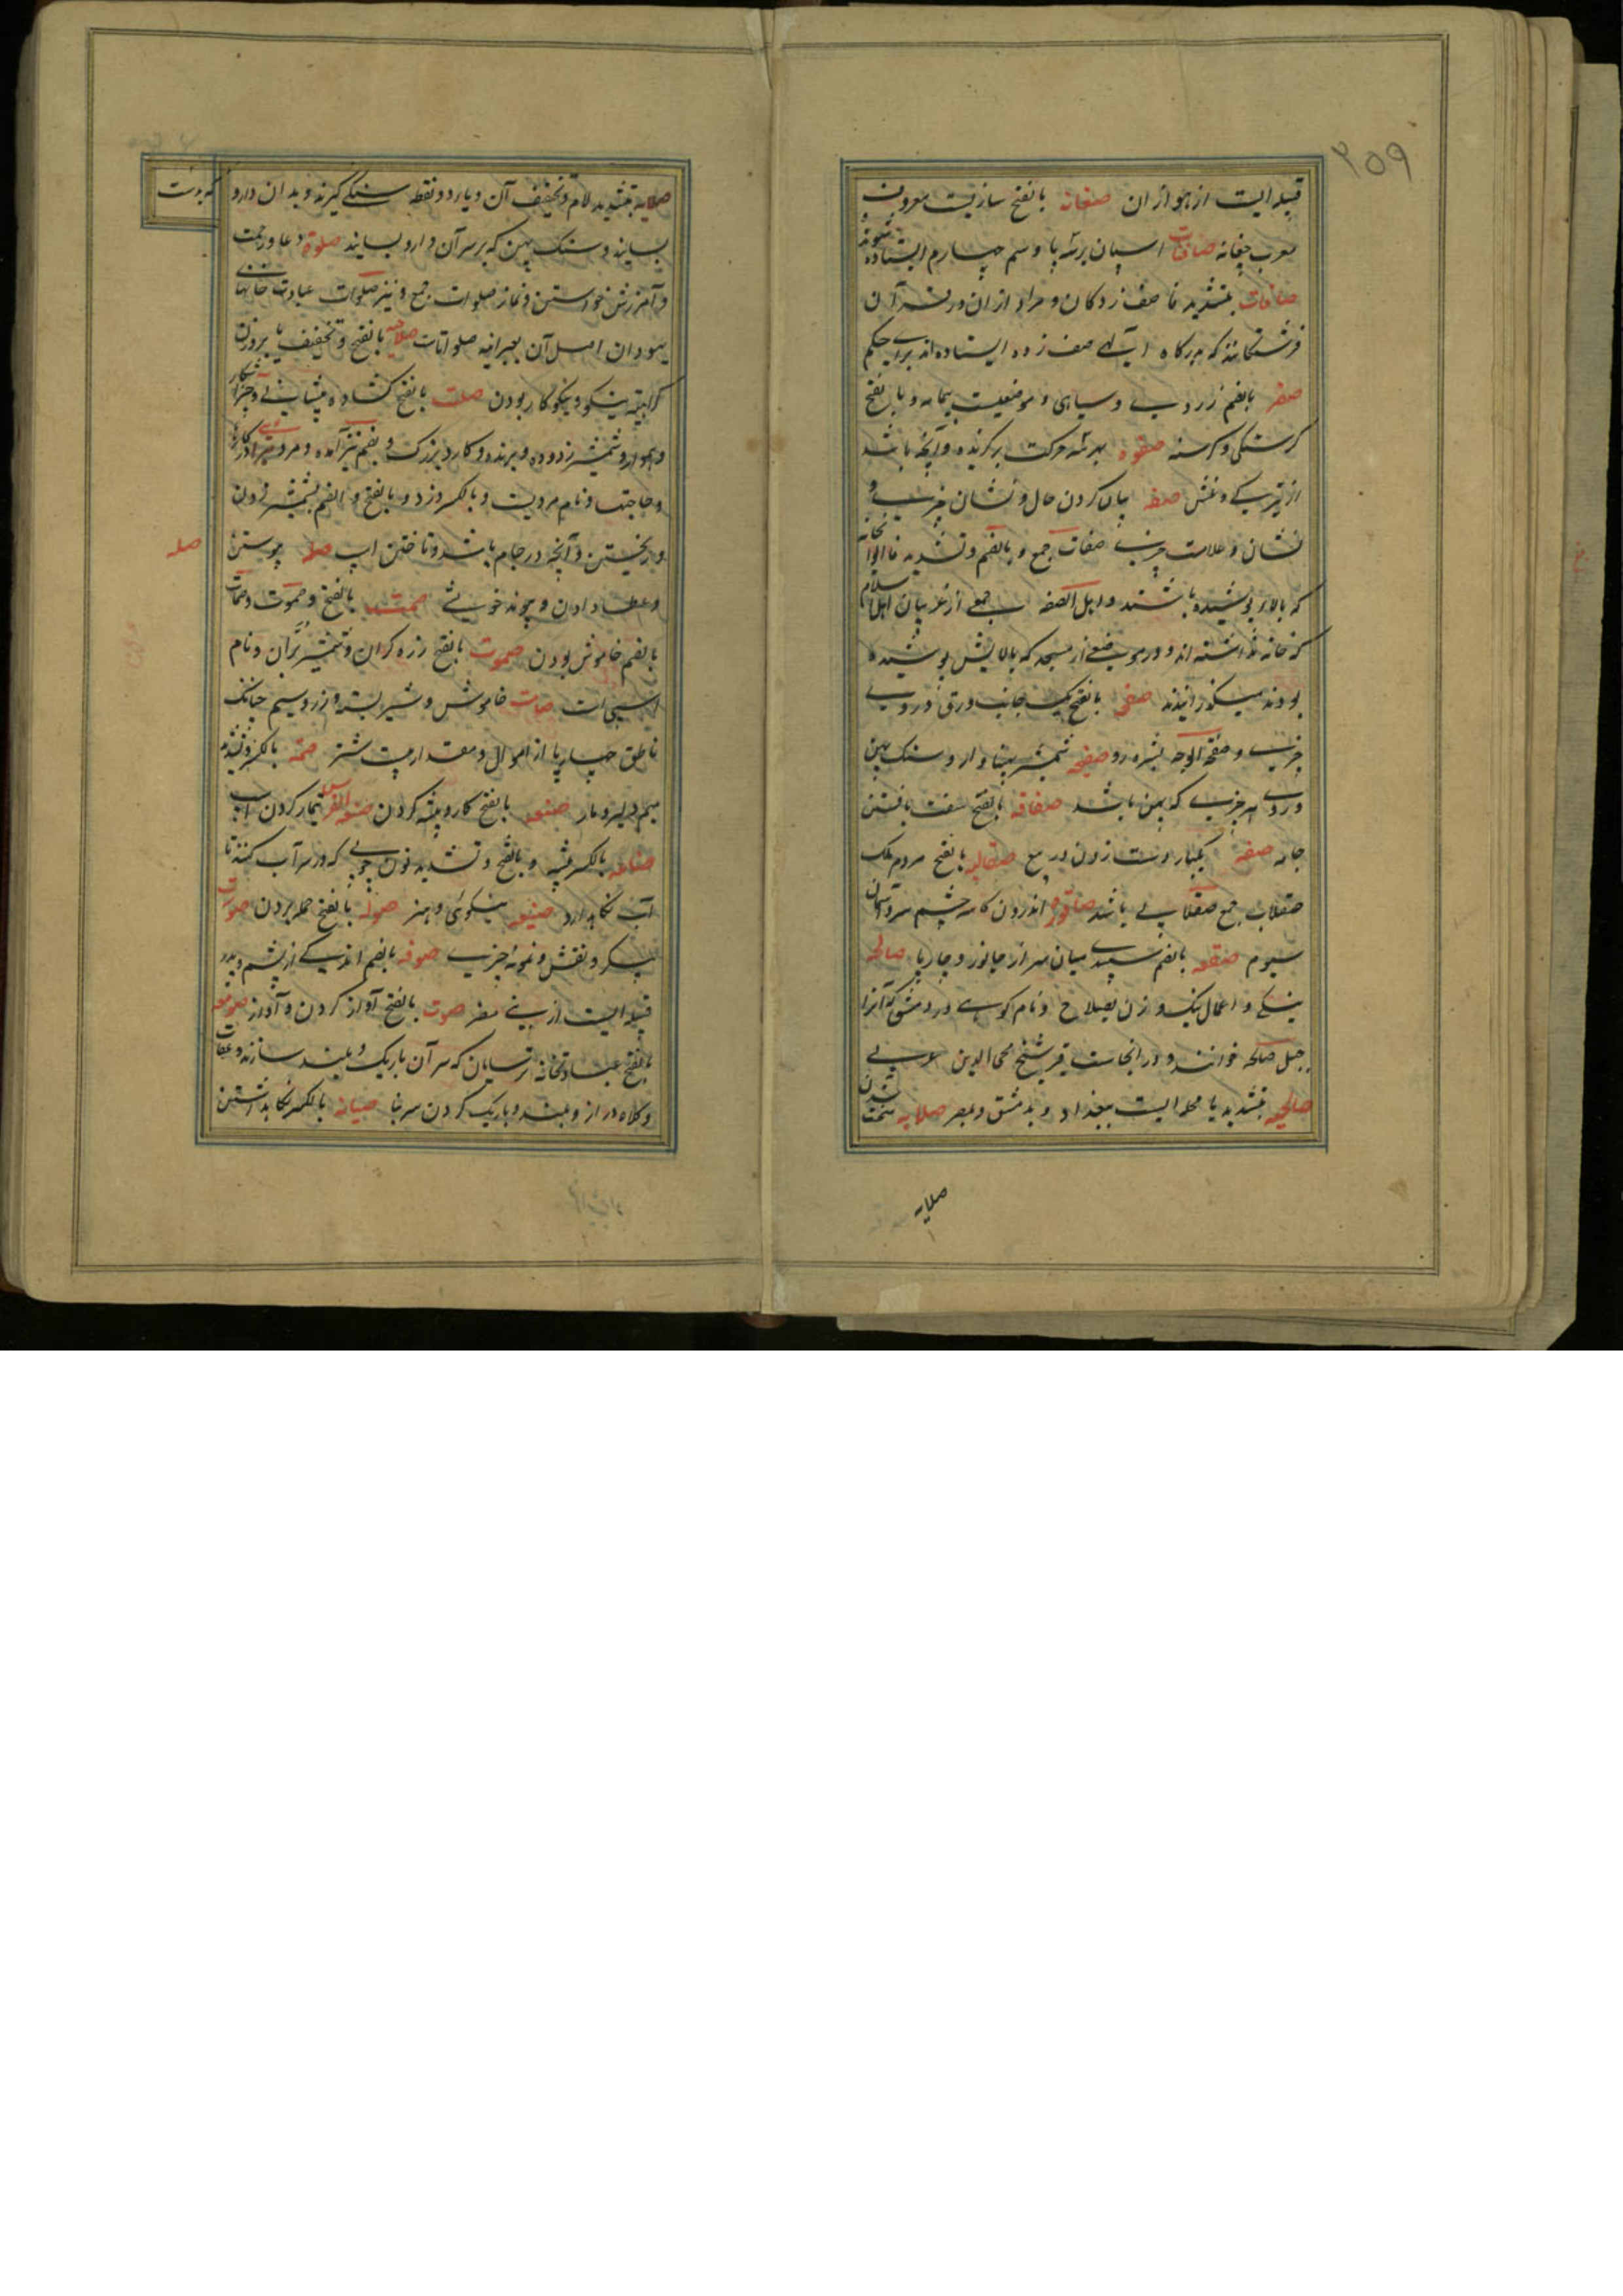 ۲۵۹
قبیله ایست از هوازان صغانه بالفتح سازیست معروف
معرب چغانه صافنات اسپان بر سه پا و سم چهارم ایستاده شوند
صافات بتشدید فا صف زدگان و مراد ازان در قرآن
فرشتگانند که بدرگاه الهی صف زده ایستاده اند برای حکم
صفر بالضم زردی و سیاهی و موضعیست بیمامه و بالفتح
گرسنگی و گرسنه صفوه بهر سه حرکت برگزیده و آنچه باشد
از تیرگی و غش صفه بیان کردن حال و نشان چیزی و
نشان و علامت چیزی صفات جمع و بالضم و تشدید فا ایوانخانه
که بالا پوشیده باشند و اهل الصفه جمعی از غریبان اهل اسلام
که خانه نداشته اند و در موضعی از مسجد که بالایش پوشیده
بودند میگذرانیدند صفحه بالفتح یک جانب ورق و روی
چیزی و صفحة الوجه بشره رو صفیحه شمشیر پهناور و سنگ پهن
و روی هر چیزی که پهن باشد صفاقه بالفتح سفت بافتن
جامه صفقه یکبار دست زدن در بیع صقالبه بالفتح مردم ملک
صقلاب جمع صقلابی باشد صاقوره اندرون کاسه چشم سر و آسمان
سیوم صقعه بالضم سپیدی میان سر از جانور و چارپا صالحه
نیکی و اعمال نیک و زن بصلاح و نام کوهی در دمشق که آنرا
جبل صالحه خوانند و در انجاست قبر شیخ محی الدین عربی
صالحیه بتشدید یا محله ایست ببغداد و بدمشق و بمصر صلابه سخت شدن
صلایه
صلایه بتشدید لام و تخفیف آن و یای دو نقطه سنگی گیرند و بدان دارو که بدست
بسایند و سنگ پهن که بر سر آن دارو بسایند صلوة دعا و رحمت
و آمرزش خواستن و نماز صلوات جمع و نیز صلوات عبادت خانهای
یهودان اصل آن بعبرانیه صلواتات صلاحیه بالفتح و تخفیف یا بروزن
کراهیة نیکو و نیکوکار بودن صلت بالفتح گشاده پیشانی و چیز آشکار
و هموار و شمشیر زدوده و برنده و کارد بزرگ و بضم نیز آمده و مرد
و حاجتها و نام مردیست و بالکسر دزد و بالفتح و الضم بشمشیر زدن
و ریختن و آنچه در جام باشد و تاختن اسپ صله پیوستن
صله
و عطا دادن و پیوند خویشی صمت بالفتح و صموت و صمات
بالضم خاموش بودن صموت بالفتح زره گران و شمشیر بران و نام
اسپی است صامت خاموش و شیر بسته و زر و سیم چنانک
ناطق چهارپا از اموال و مقدار بیست شتر صمه بالکسر و تشدید
میم دلیر و مار صنعه بالفتح کار و پیشه کردن صنعة الفرس تیمار کردن اسب
صناعه بالکسر پیشه و بالفتح و تشدید نون چوبی که در سر آب کنند تا
آب نگاهدارد صنیعه نیکوئی و هنر صولة بالفتح حمله بردن صورت
پیکر و نقش و نمونه چیزی صوفه بالضم اندکی از پشم و پدر
قبیله ایست از بنی مضر صوت بالفتح آواز کردن و آواز صومعه
بالفتح عبادتخانه ترسایان که سر آن باریک و بلند سازند و عقاب
و کلاه دراز و بلند و باریک کردن سر بنا صیانه بالکسر نگاه داشتن